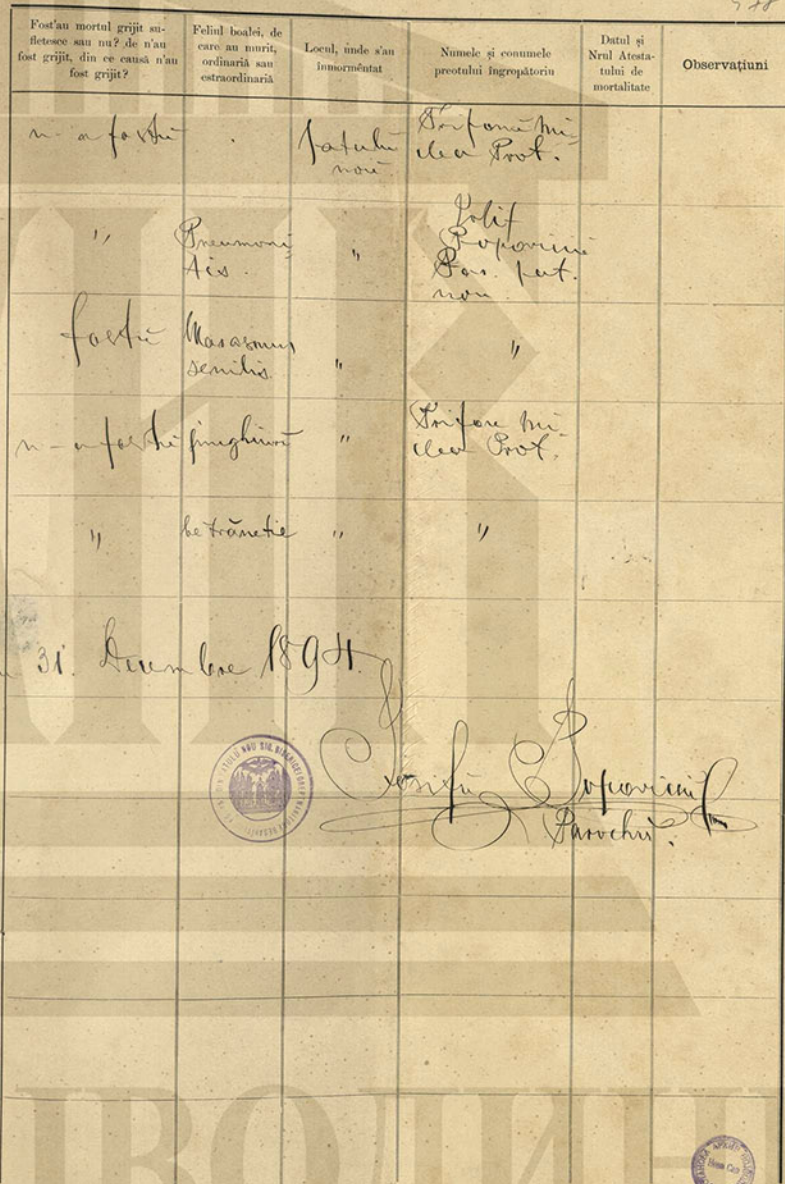 Fost'au mortul grijit su-
fletesce sau nu? de n'au
fost grijit, din ce causă n'au
fost grijit?
Feliul boalei, de
care au murit,
ordinariă sau
estraordinariă
Locul, unde s'au
înmormêntat
Numele și conumele
preotului îngropătoriu
Datul și
Nrul Atesta-
tului de
mortalitate
Observațiuni
n-a fostŭ
Satulu
nou
Trifonŭ Mi-
clea Prot.
"
Pneumoni-
tis.
"
Iosif
Popoviciŭ
Par. Sat.
nou.
fostŭ
Marasmus
senilis.
"
"
n-a fostŭ
"
Trifon Mi-
clea Prot.
"
betrânetie
"
"
31. Decembre 1894.
Iosifu Popoviciŭ
Parochŭ.